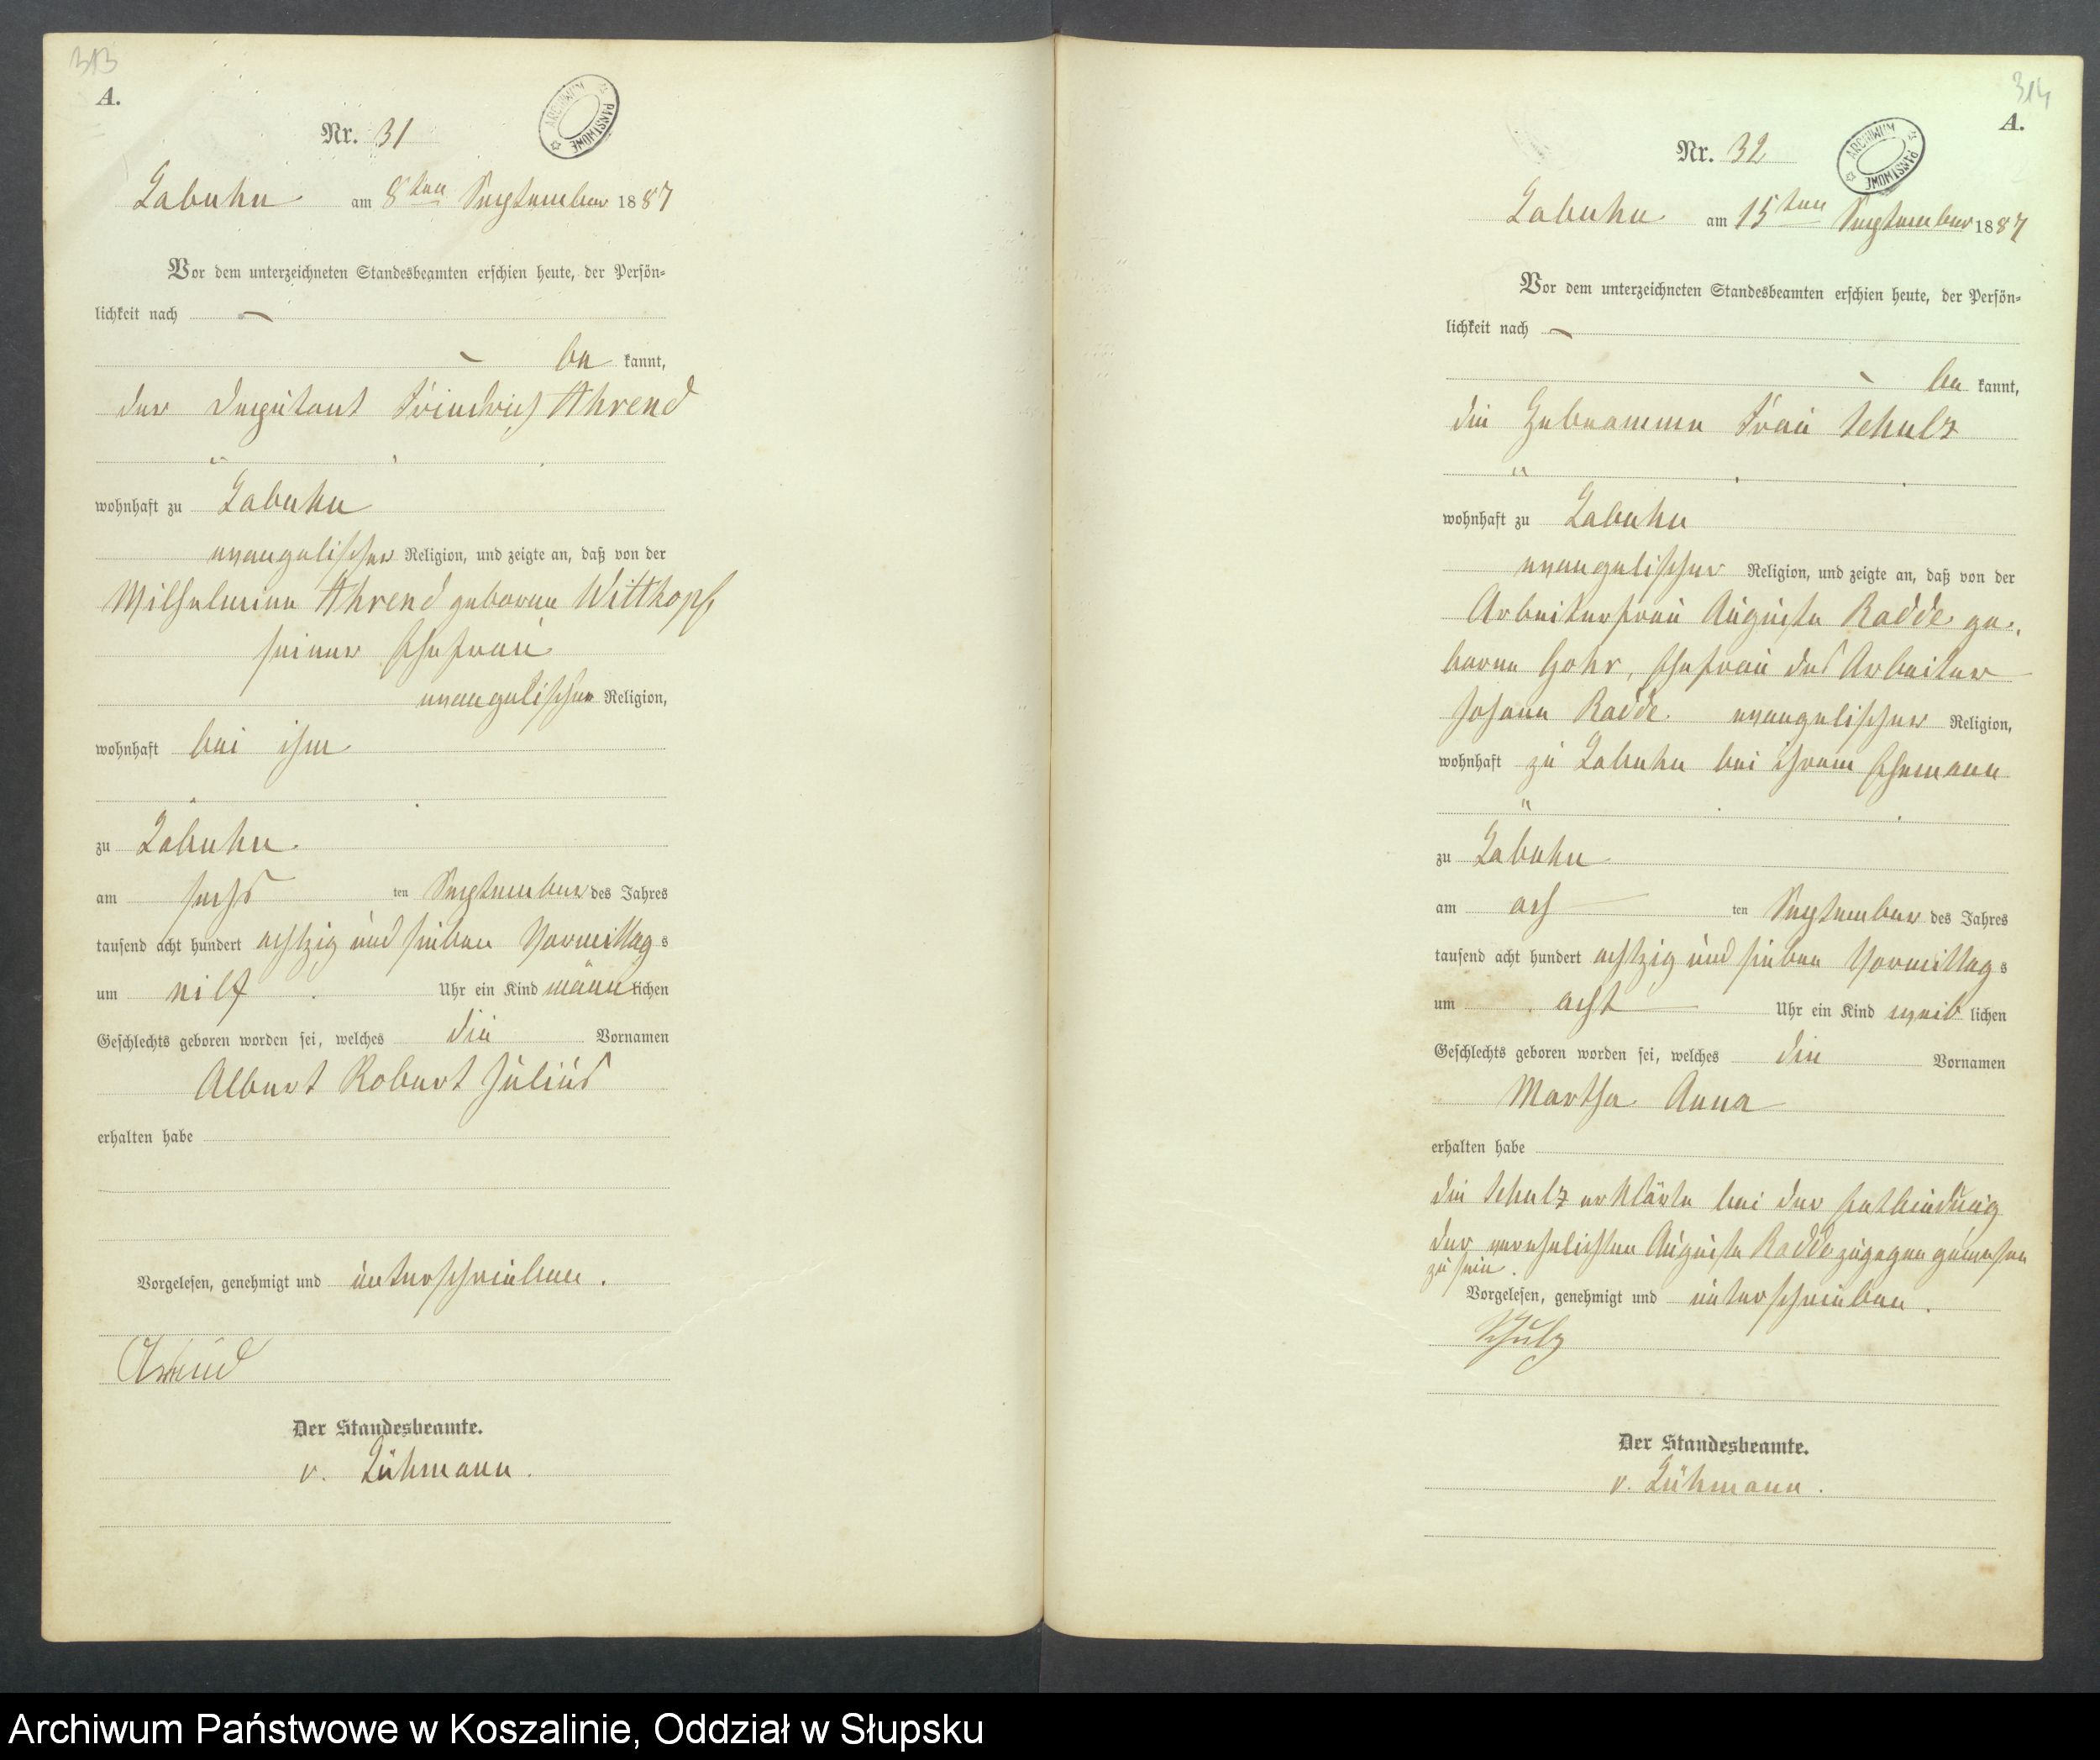 313
A.
Nr. 31
ARCHIWUM PAŃSTWOWE
Labuhn am 8ten September 1887
Vor dem unterzeichneten Standesbeamten erschien heute, der Persön-
lichkeit nach
be kannt,
der Deputant Friedrich Ahrend
wohnhaft zu Labuhn
evangelischer Religion, und zeigte an, daß von der
Wilhelmine Ahrend geborne Witthopf,
seiner Ehefrau
evangelischer Religion,
wohnhaft bei ihm
zu Labuhn
am sechs ten September des Jahres
tausend acht hundert achtzig und sieben Vormittags
um eilf Uhr ein Kind männlichen
Geschlechts geboren worden sei, welches die Vornamen
Albert Robert Julius
erhalten habe
Vorgelesen, genehmigt und unterschrieben.
Arend
Der Standesbeamte.
v. Lühmann.
314
A.
Nr. 32
ARCHIWUM PAŃSTWOWE
Labuhn am 15ten September 1887
Vor dem unterzeichneten Standesbeamten erschien heute, der Persön-
lichkeit nach
be kannt,
die Hebeamme Frau Schulz
wohnhaft zu Labuhn
evangelischer Religion, und zeigte an, daß von der
Arbeiterfrau Auguste Radde ge-
borne Gohr, Ehefrau des Arbeiter
Johann Radde. evangelischer Religion,
wohnhaft zu Labuhn bei ihrem Ehemann
zu Labuhn
am ach ten September des Jahres
tausend acht hundert achtzig und sieben Vormittags
um acht Uhr ein Kind weiblichen
Geschlechts geboren worden sei, welches die Vornamen
Martha Anna
erhalten habe
die Schulz erklärte bei der Entbindung
der verehelichten Auguste Radde zugegen gewesen
zu sein.
Vorgelesen, genehmigt und unterschrieben.
Schulz
Der Standesbeamte.
v. Lühmann.
Archiwum Państwowe w Koszalinie, Oddział w Słupsku